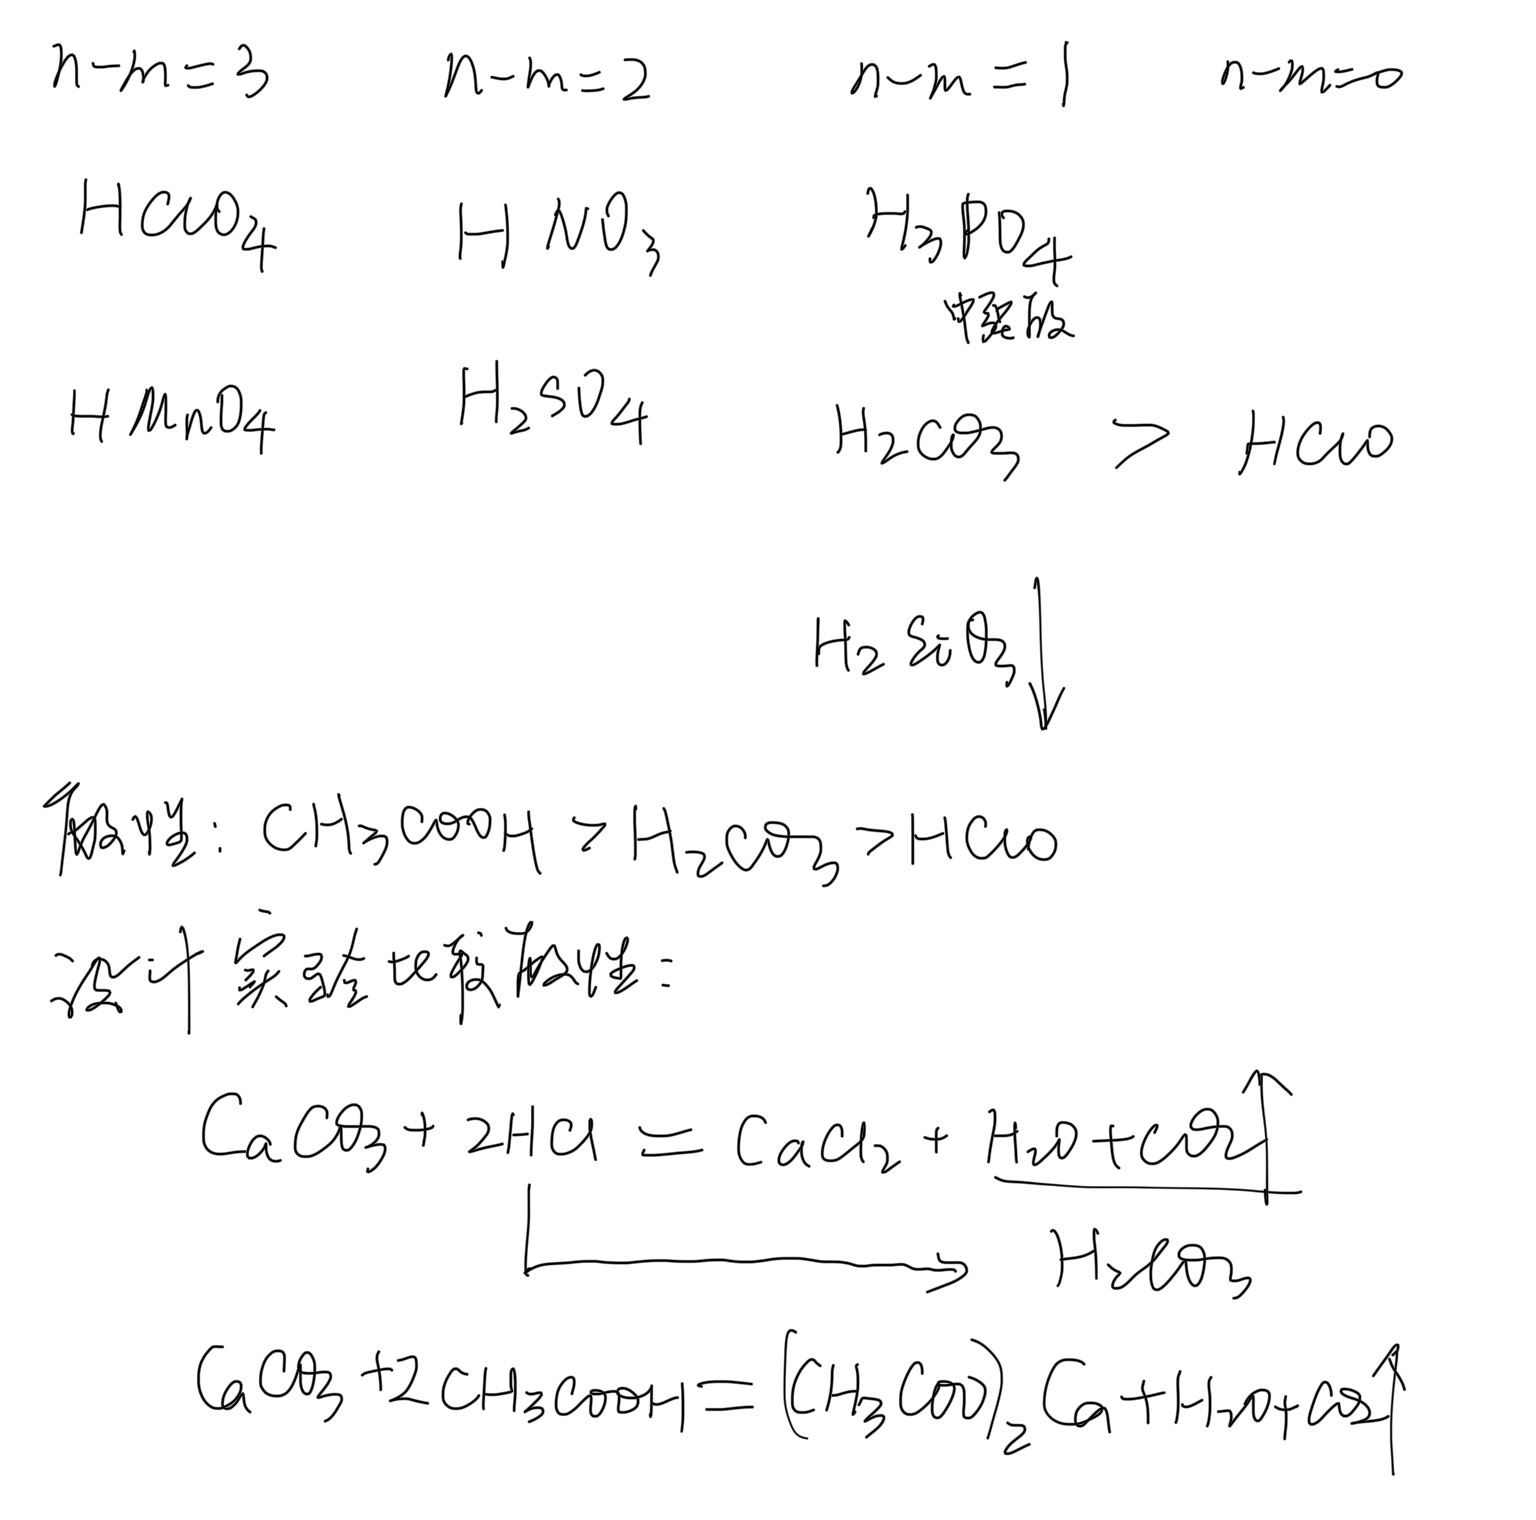 n-m=3 n-m=2 n-m=1 n-m=0
HClO4 HNO3 H3PO4
中强酸
HMnO4 H2SO4 H2CO3 > HClO
H2SiO3↓
酸性: CH3COOH > H2CO3 > HClO
设计实验比较酸性:
CaCO3 + 2HCl = CaCl2 + H2O + CO2↑
H2CO3
CaCO3 + 2CH3COOH = (CH3COO)2Ca + H2O + CO2↑